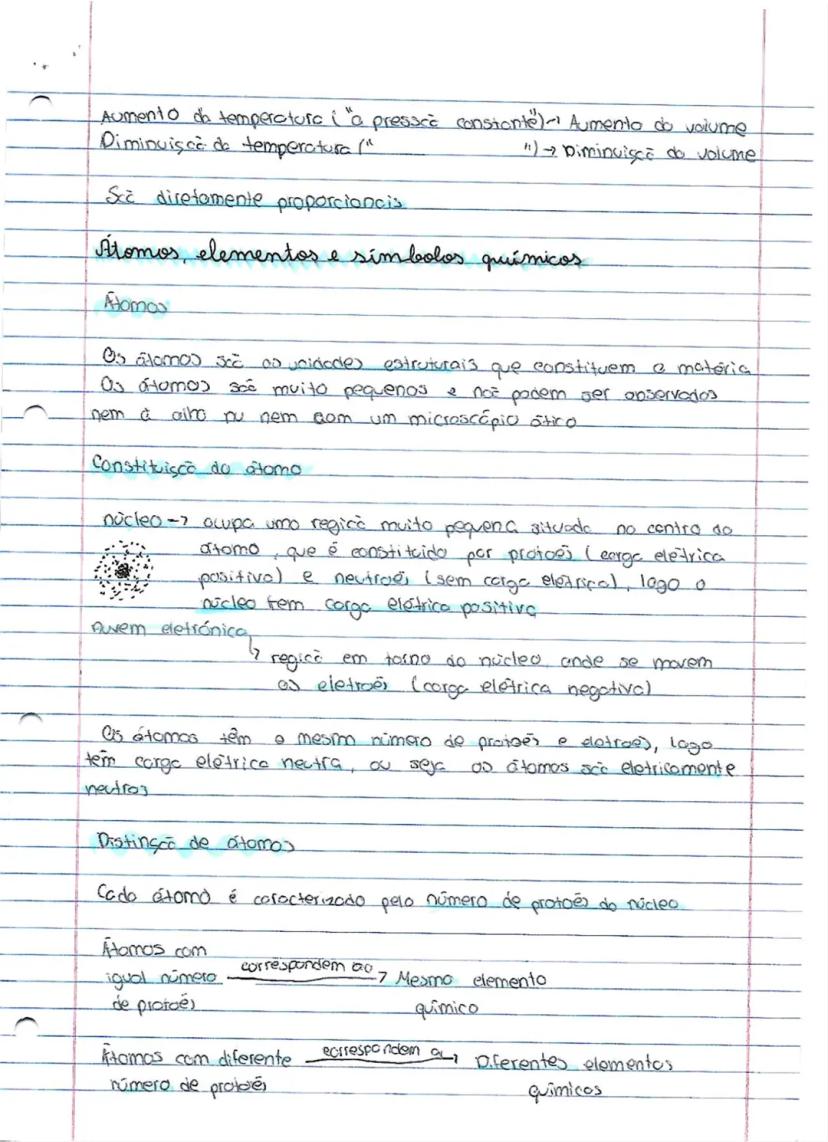 Aumento da temperatura ("a pressão constante") → Aumento do volume
Diminuição da temperatura (" ") → Diminuição do volume
São diretamente proporcionais
Átomos, elementos e símbolos químicos
Átomos
Os átomos são as unidades estruturais que constituem a matéria
Os átomos são muito pequenos e não podem ser observados
nem a olho nu nem com um microscópio ótico
Constituição do átomo
núcleo → ocupa uma região muito pequena situada no centro do
átomo, que é constituído por protões (carga elétrica
positiva) e neutrões (sem carga elétrica), logo o
núcleo tem carga elétrica positiva
Nuvem eletrónica
↳ região em torno do núcleo, onde se movem
os eletrões (carga elétrica negativa)
Os átomos têm o mesmo número de protões e eletrões, logo
têm carga elétrica neutra, ou seja os átomos são eletricamente
neutros
Distinção de átomos
Cada átomo é caracterizado pelo número de protões do núcleo
Átomos com
igual número correspondem ao → Mesmo elemento
de protões químico
Átomos com diferente correspondem a → Diferentes elementos
número de protões químicos